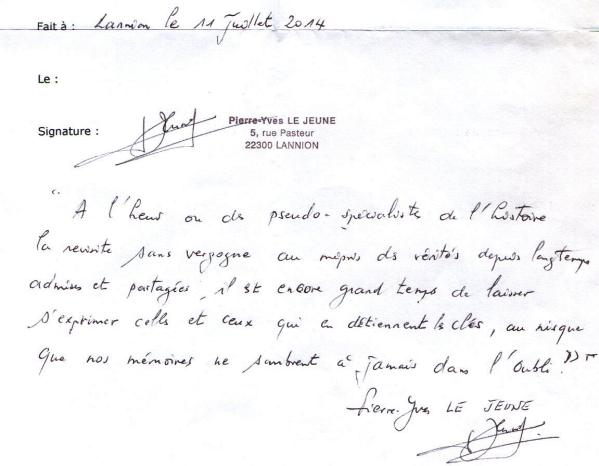 Fait à : Lannion le 11 Juillet 2014
Le :
Signature :
Pierre-Yves LE JEUNE
5, rue Pasteur
22300 LANNION
"
A l'heure ou des pseudo-spécialiste de l'histoire
la revisite sans vergogne au mépris des vérités depuis longtemps
admises et partagées, il est encore grand temps de laisser
s'exprimer celles et ceux qui en détiennent les clés, au risque
que nos mémoires ne sombrent à jamais dans l'oubli."
Pierre-Yves LE JEUNE